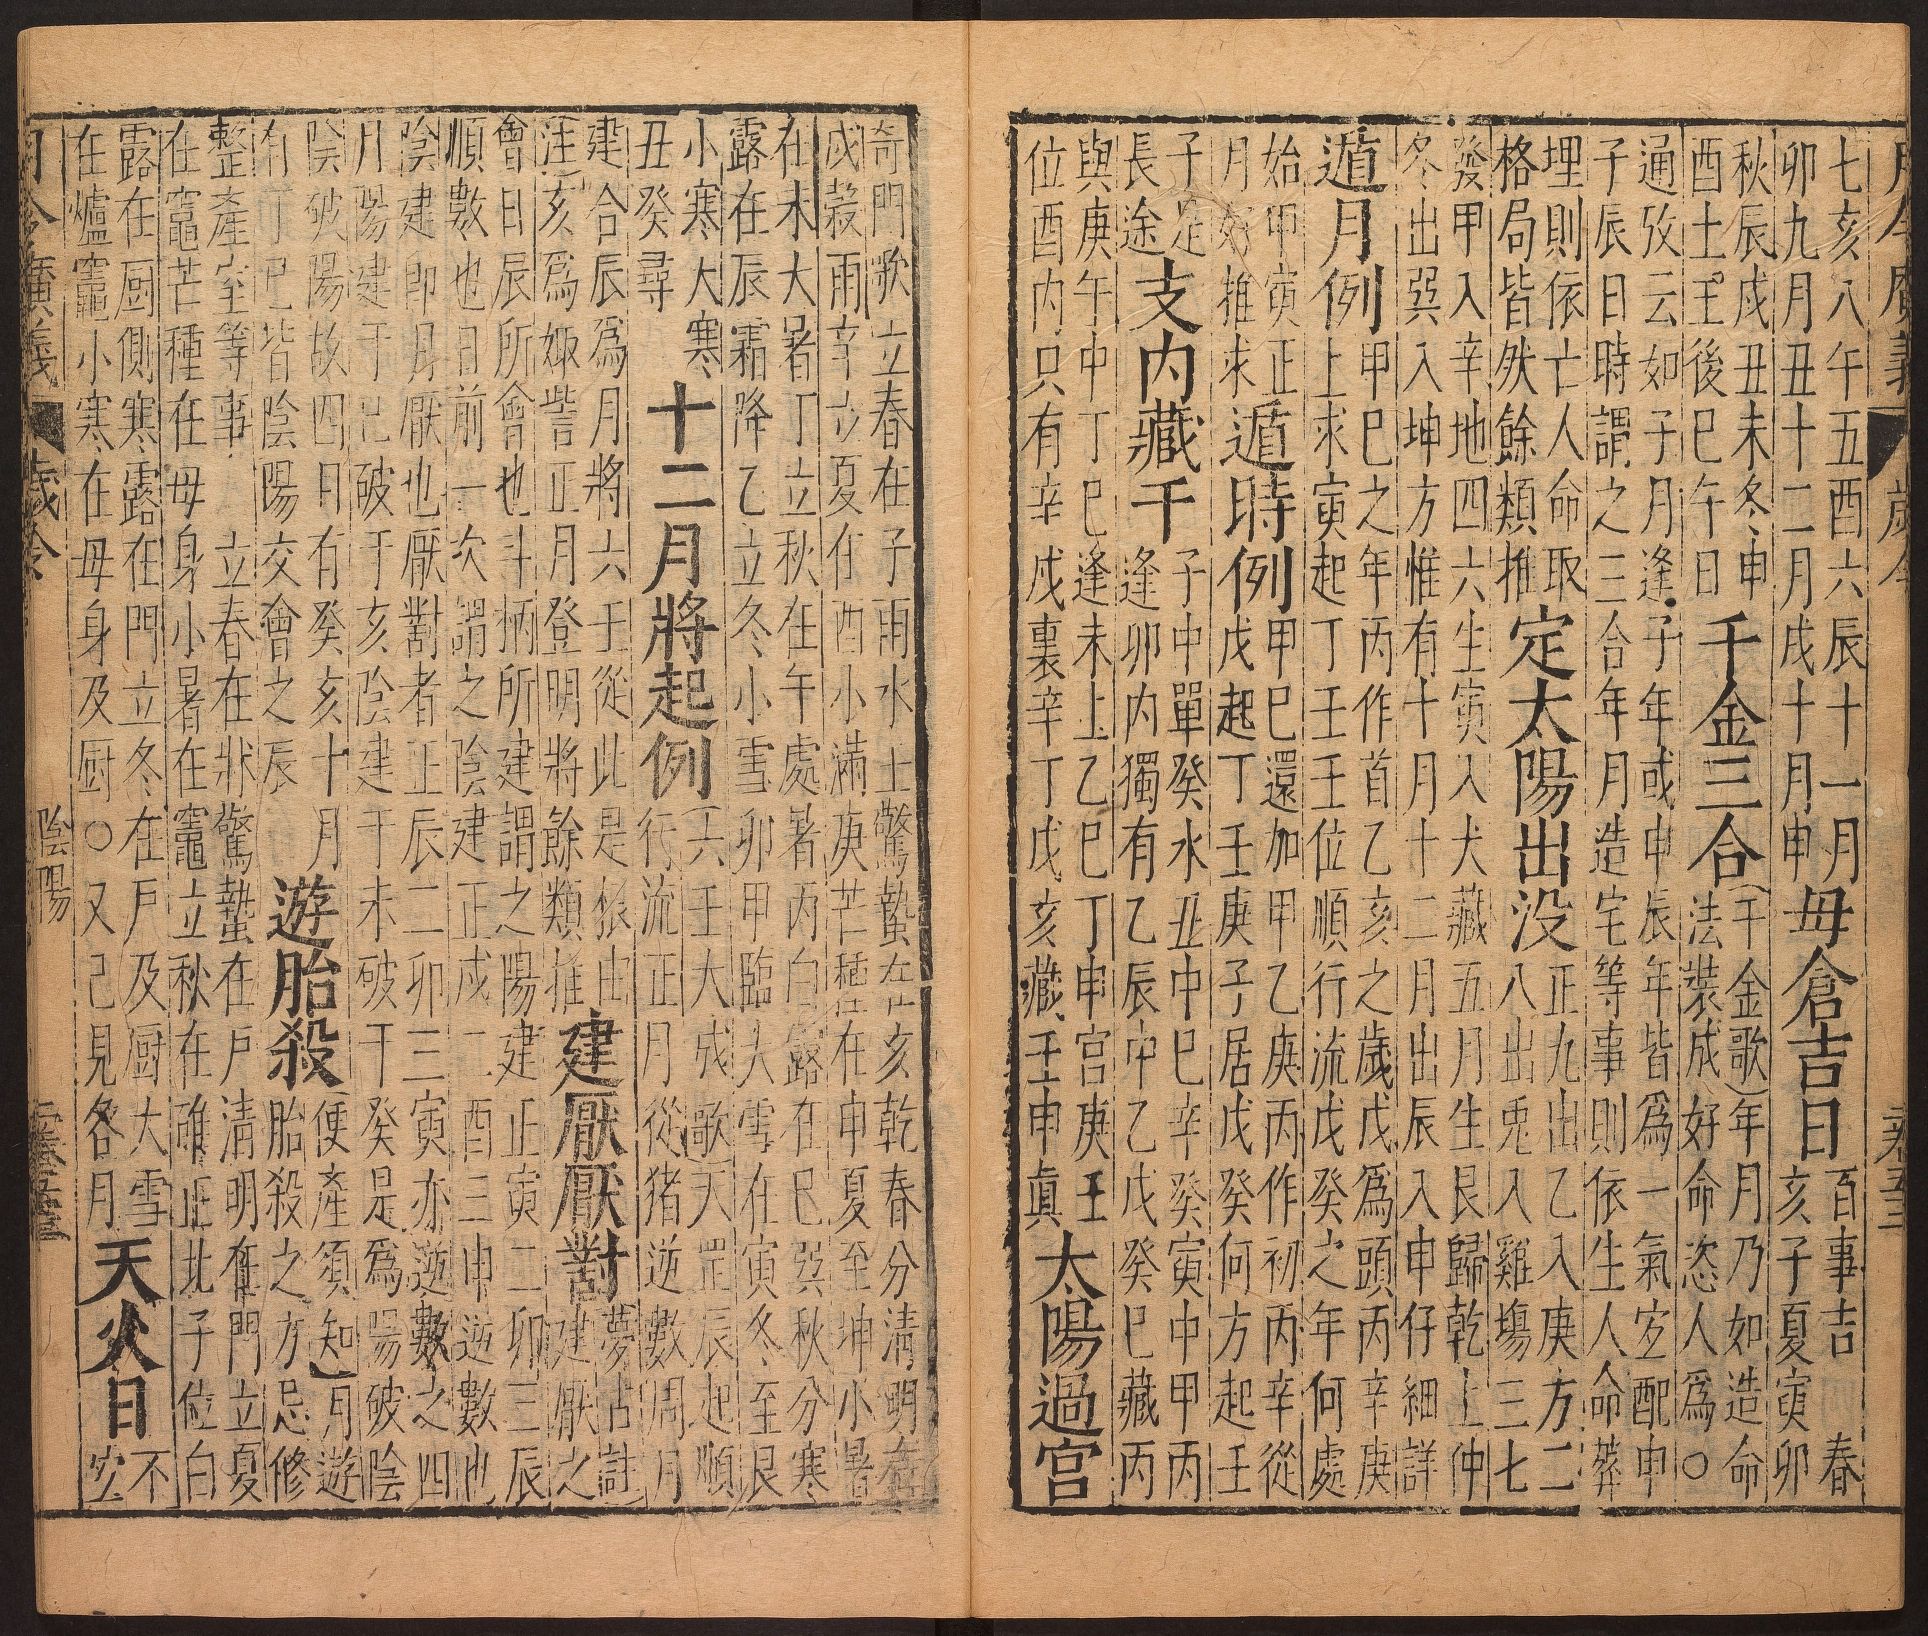 七亥八午五酉六辰十一月
卯九月丑十二月戌十月申
母倉吉日
百事吉　春
亥子夏寅卯
秋辰戌丑未冬申
酉土王後巳午日
千金三合
(千金歌)年月乃如造命
法裝成好命恣人爲○
通攷云如子月逢子年或申辰年皆爲一氣宐配申
子辰日時謂之三合年月造宅等事則依生人命葬
埋則依亡人命取
格局皆然餘類推
定太陽出没
正九出乙入庚方二
八出兎入雞塲三七
發甲入辛地四六生寅入犬藏五月生艮歸乾上仲
冬出巽入坤方惟有十月十二月出辰入申仔細詳
遁月例
甲巳之年丙作首乙亥之歲戊爲頭丙辛庚
上求寅起丁壬壬位順行流戊癸之年何處
始甲寅正
月好推求
遁時例
甲巳還加甲乙庚丙作初丙辛從
戊起丁壬庚子居戊癸何方起壬
子是
長途
支内藏干
子中單癸水丑中巳辛癸寅中甲丙
逢卯内獨有乙辰中乙戊癸巳藏丙
與庚午中丁巳逢未上乙巳丁申宫庚壬
位酉内只有辛戌裏辛丁戊亥藏壬申眞
太陽過宫
奇門歌立春在子雨水上驚蟄在亥乾春分清明在
戌穀雨辛立夏在酉小滿庚芒種在申夏至坤小暑
在未大暑丁立秋在午處暑丙白露在巳巽秋分寒
露在辰霜降乙立冬小雪卯甲臨大雪在寅冬至艮
小寒大寒
丑癸尋
十二月將起例
(六壬大成歌天罡辰起順
行流正月從猪逆數周月
建合辰爲月將六壬從此是根由
注)亥爲娵訾正月登明將餘類推
建厭厭對
夢占註
建厭之
會日辰所會也斗柄所建謂之陽建正寅二卯三辰
順數也日前一次謂之陰建正戌二酉三申逆數也
陰建即月厭也厭對者正辰二卯三寅亦逆數之四
月陽建于巳破于亥陰建于未破于癸是爲陽破陰
陰破陽故四月有癸亥十月
有丁巳皆陰陽交會之辰
遊胎殺
(便產須知)月遊
胎殺之方忌修
整產室等事　立春在牀驚蟄在戶清明在門立夏
在竈芒種在母身小暑在竈立秋在碓正北子位白
露在厨側寒露在門立冬在戶及厨大雪
在爐竈小寒在母身及厨○又己見各月
天火日
不
宐
月令廣義
歲令
陰陽